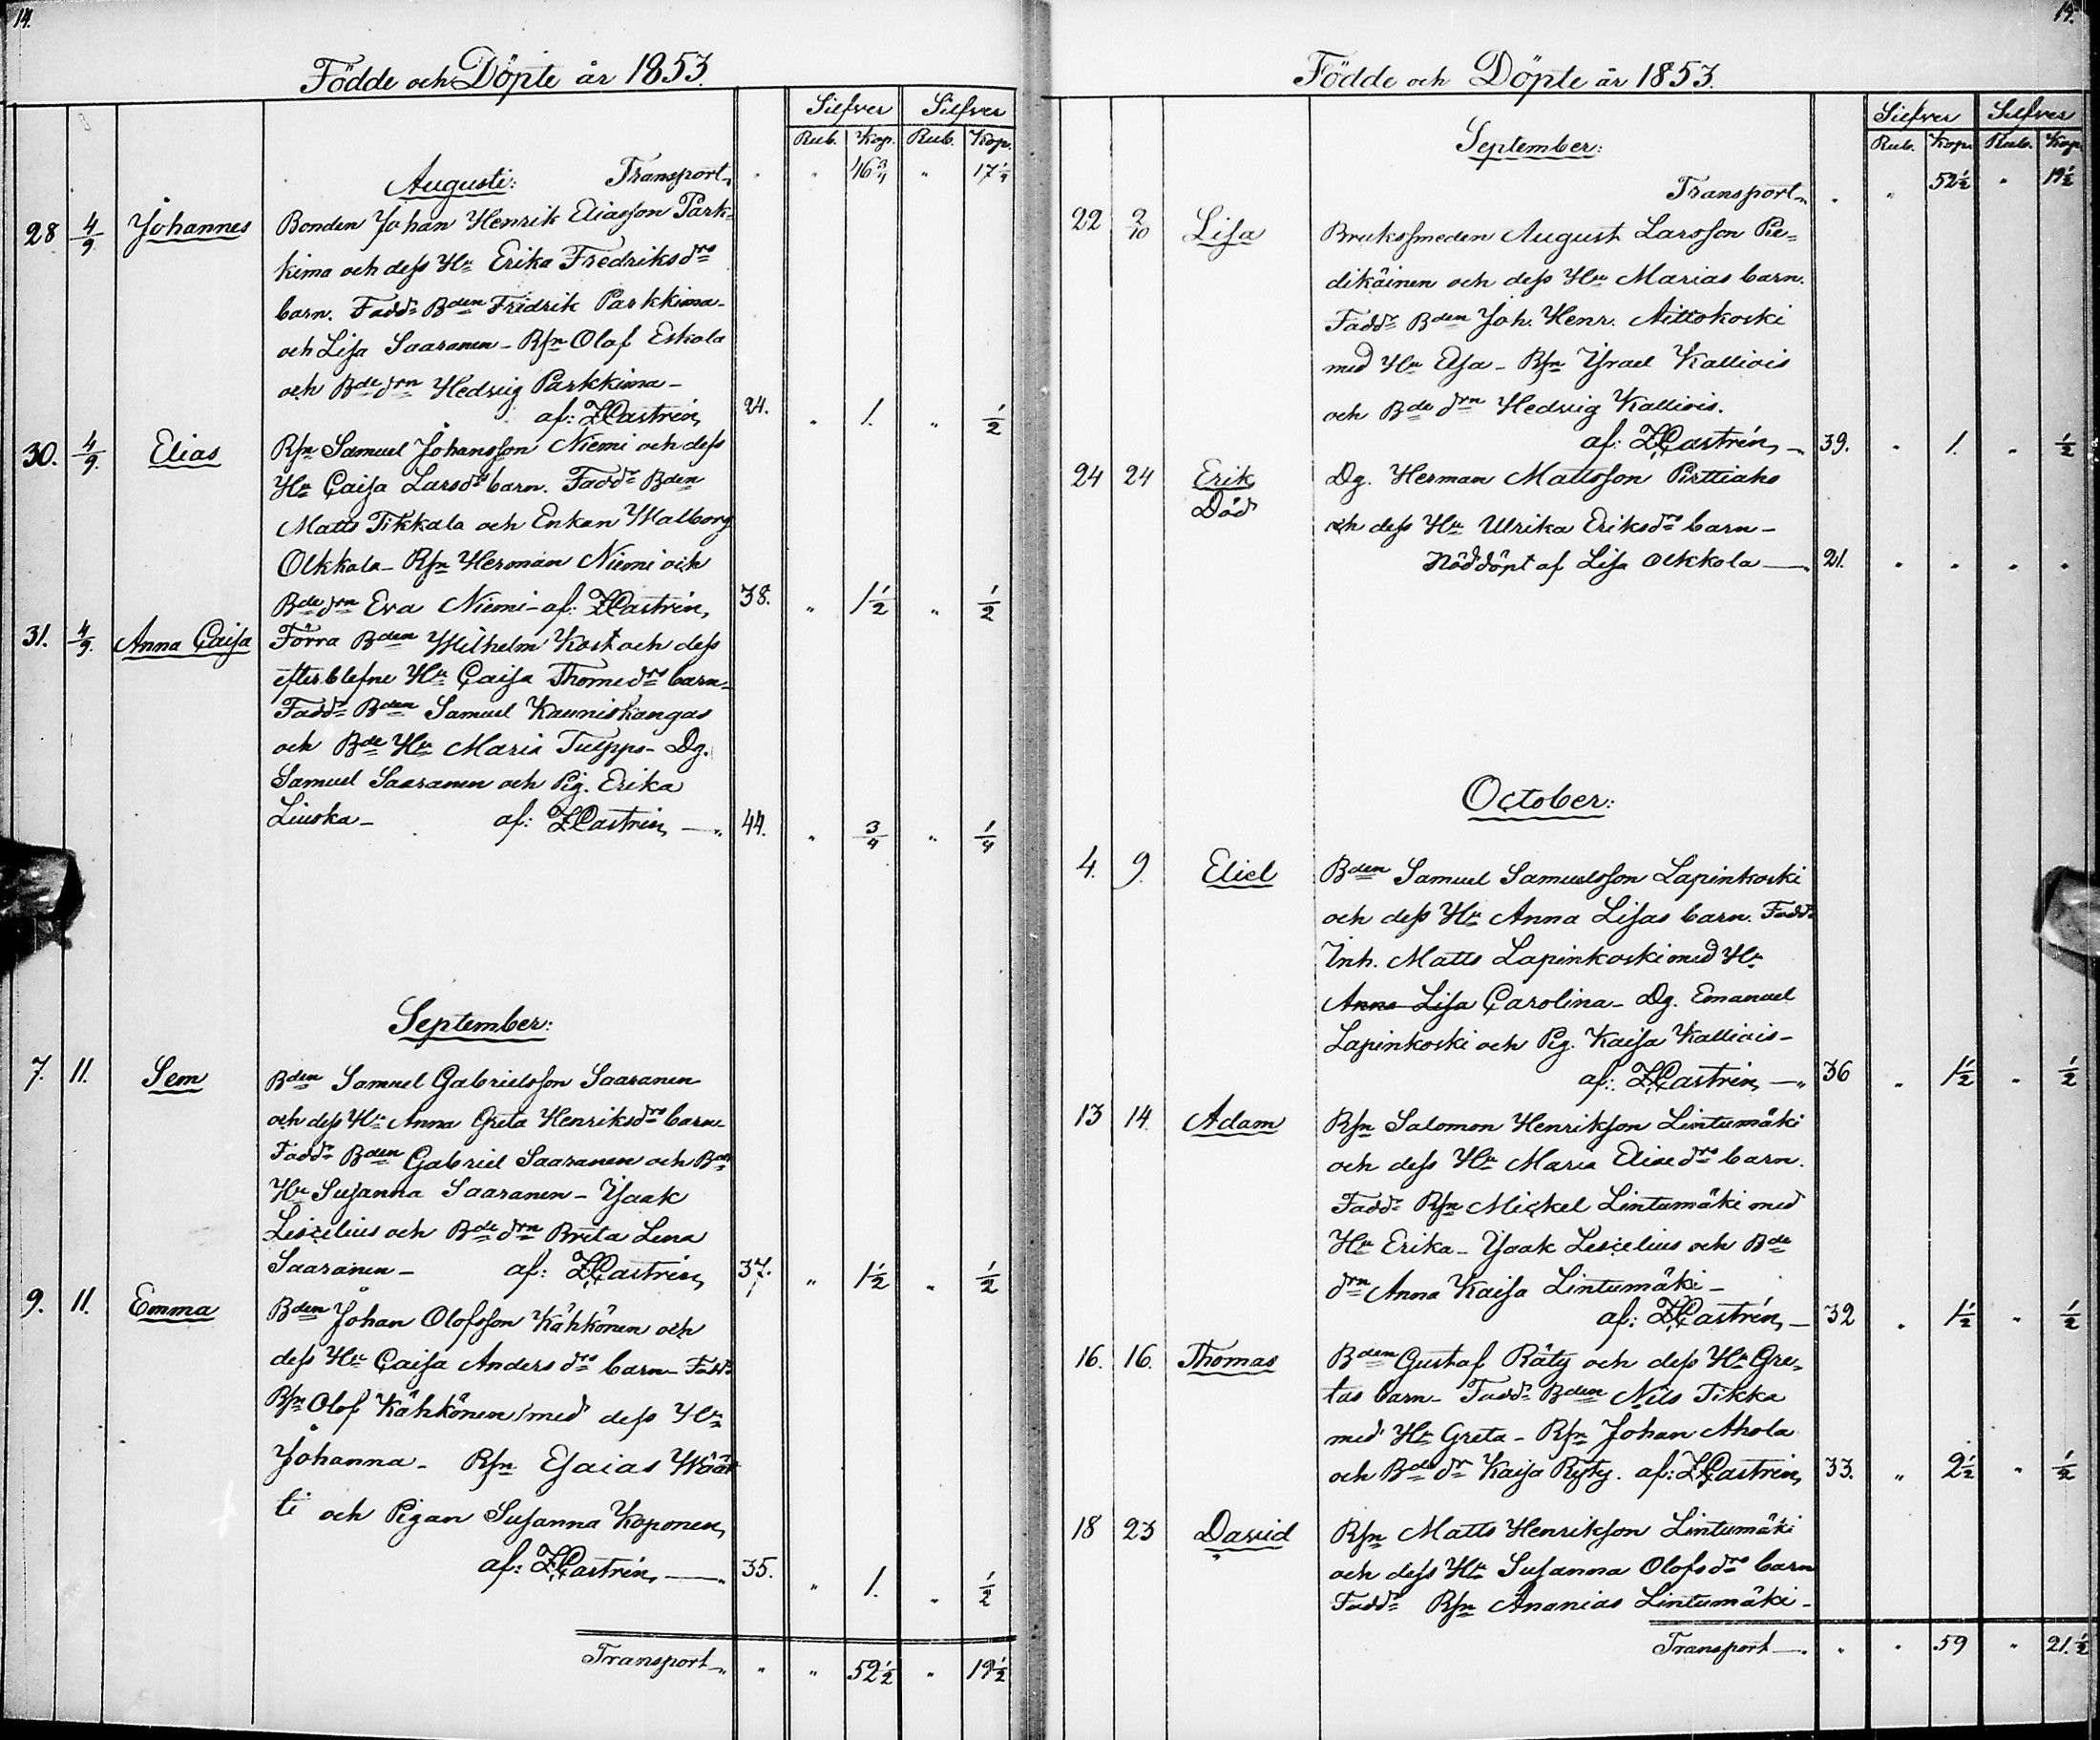 14.
Födde och Döpte år 1853.
Silfver Silfver
Rub. Kop. Rub. Kop.
Augusti: Transport „ „ 46 3/4 „ 17 1/4
28 4/9 Johannes Bonden Johan Henrik Eliasson Park-
kima och dess Hu Erika Fredriksdrs
barn. Faddr Bden Fridrik Parkkima-
och Lisa Saaranen - Rsn Olof Eskola
och Bde drn Hedvig Parkkima -
af: Z Castrén, 24. „ 1. „ 1/2
30. 4/9. Elias Rsn Samuel Johansson Niemi och dess
Hu Caisa Larsdrs barn. Faddr Bden
Matts Tikkala och Enkan Walborg
Olkkola - Rsn Herman Niemi och
Bde drn Eva Niemi - af: Z Castrén, 38. „ 1 1/2 „ 1/2
31. 4/9. Anna Caisa Förra Bden Wilhelm Kost och dess
efterblefne Hu Caisa Thomedrs barn -
Faddr Bden Samuel Kauniskangas
och Bde Hu Maria Tulppo - Dg.
Samuel Saaranen och Pig. Erika
Liuska - af: Z Castrén, — „ 44. „ 3/4 „ 1/4
September:
7. 11. Sem Bden Samuel Gabrielsson Saaranen
och dess Hu Anna Greta Henriksdrs barn -
Faddr Bden Gabriel Saaranen och Bde
Hu Susanna Saaranen - Isaak
Lescelius och Bde drn Brita Lena
Saaranen - af: Z Castrén, 37. „ 1 1/2 „ 1/2
9. 11. Emma Bden Johan Olofsson Kähkönen och
dess Hu Caisa Anders drs barn - Faddr
Rsn Olof Kähkönen med dess Hu
Johanna - Rsn Esaias Wäät
ti och Pigan Susanna Koponen,
af: Z Castrén, — „ 35. „ 1. „ 1/2
Transport „ „ „ 52 1/2 „ 19 1/2
15.
Födde och Döpte år 1853.
Silfver Silfver
Rub. Kop. Rub. Kop.
September:
Transport „ . „ 52 1/2 „ 19 1/2
22 2/10 Lisa Bruksmeden August Larsson Pie-
dikäinen och dess Hu Marias barn.
Faddr Bden Joh. Henr. Aittokoski
med Hu Elsa - Rsn Israel Kalliois
och Bde drn Hedvig Kalliois.
af: Z Castrén, — 39. „ 1. „ 1/2
24 24 Erik Dg. Herman Mattsson Pirttiaho
Död och dess Hu Ulrika Eriksdrs barn -
Nöddöpt af Lisa Olkkola — „ 21. „ „ „ „
October:
4. 9. Eliel Bden Samuel Samuelsson Lapinkoski
och dess Hu Anna Lisas barn. Faddr
Inh. Matts Lapinkoski med Hu
Anna Lisa Carolina - Dg. Emanuel
Lapinkoski och Pig. Kaisa Kalliois -
af: Z Castrén, — „ 36 „ 1 1/2 „ 1/2
13 14. Adam Rsn Salomon Henrikson Lintumäki
och dess Hu Maria Eliaedrs barn.
Faddr Rsn Mickel Lintumäki med
Hu Erika - Isaak Lescelius och Bde
drn Anna Kaisa Lintumäki -
af: Z Castrén, — 32 „ 1 1/2 „ 1/2
16. 16. Thomas Bden Gustaf Räty och dess Hu Gre-
tas barn - Faddr Bden Nils Tikka
med Hu Greta - Rsn Johan Ahola
och Bde dr Kaisa Ryty. af: Z Castrén, 33. „ 2 1/2 „ 1/2
18 23 David Rsn Matts Henrikson Lintumäki
och dess Hu Susanna Olofsdrs barn
Faddr Rsn Ananias Lintumäki -
Transport — . „ „ 59 „ 21. 1/2